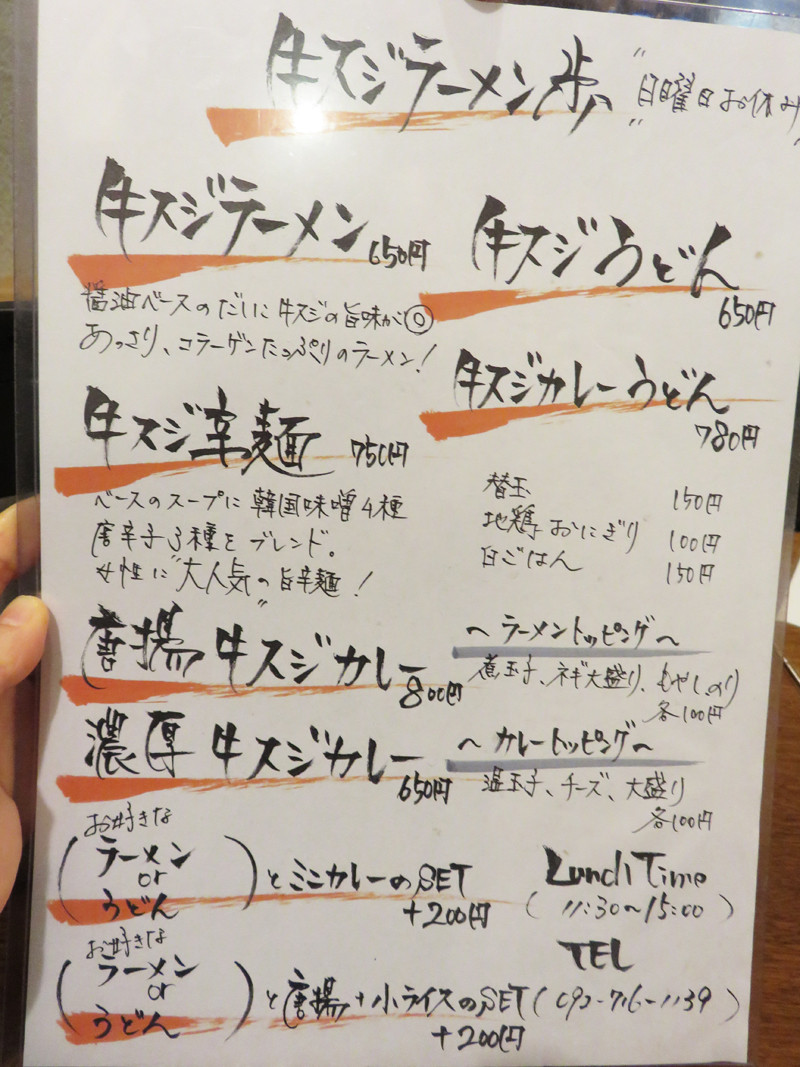 牛スジラーメン歩 "日曜日お休み"
牛スジラーメン 650円
醤油ベースのだしに牛スジの旨味が◎
あっさり、コラーゲンたっぷりのラーメン!
牛スジうどん
650円
牛スジカレーうどん
780円
牛スジ辛麺 750円
ベースのスープに韓国味噌4種
唐辛子3種をブレンド。
女性に"大人気"の旨辛麺!
替玉 150円
地鶏おにぎり 100円
白ごはん 150円
唐揚牛スジカレー 800円
濃厚牛スジカレー 650円
〜ラーメントッピング〜
煮玉子、ネギ大盛り、もやし、のり
各100円
〜カレートッピング〜
温玉子、チーズ、大盛り
各100円
お好きな
(ラーメン
or
うどん)とミニカレーのSET
+200円
お好きな
(ラーメン
or
うどん)と唐揚+小ライスのSET
+200円
Lunch Time
(11:30〜15:00)
TEL
(092-716-1139)